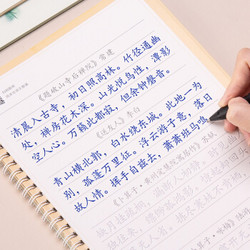 《题破山寺后禅院》常建
清晨入古寺，初日照高林。竹径通幽
处，禅房花木深。山光悦鸟性，潭影
空人心。万籁此都寂，但余钟磬音。
《送友人》李白
青山横北郭，白水绕东城。此地一为
别，孤蓬万里征。浮云游子意，落日
故人情。挥手自兹去，萧萧班马鸣